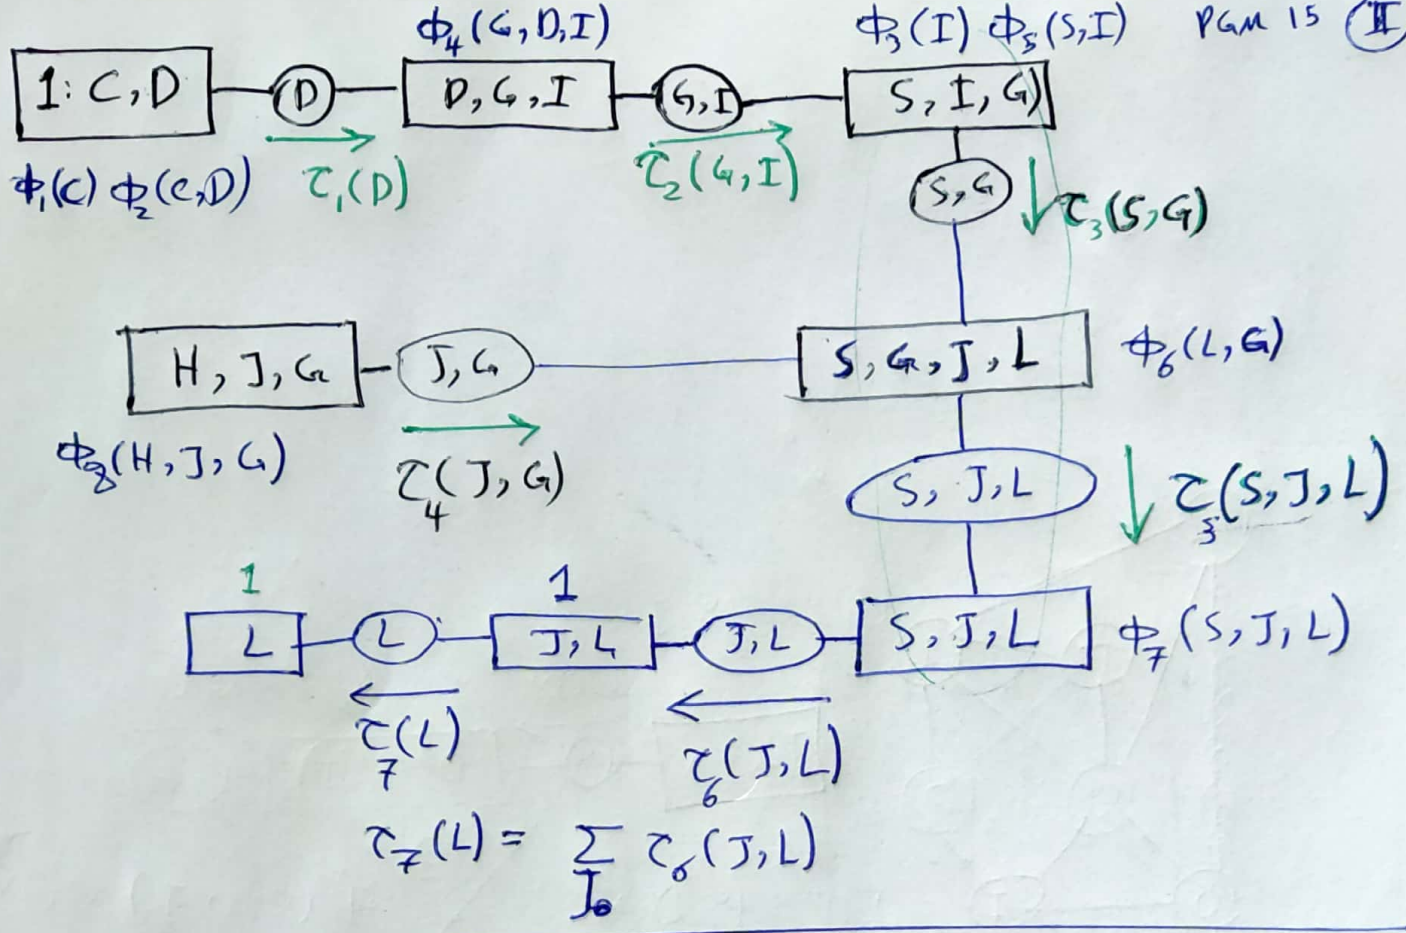 ϕ₄(G,D,I) ϕ₃(I) ϕ₅(S,I) PGM 15 II
1: C,D D D,G,I G,I S,I,G)
ϕ₁(C) ϕ₂(C,D) τ₁(D) τ₂(G,I) S,G τ₃(S,G)
H,J,G J,G S,G,J,L ϕ₆(L,G)
ϕ₈(H,J,G) τ₄(J,G) S,J,L τ₅(S,J,L)
1 1
L L J,L J,L S,J,L ϕ₇(S,J,L)
τ₇(L) τ₆(J,L)
τ₇(L) = Σ_J τ₆(J,L)